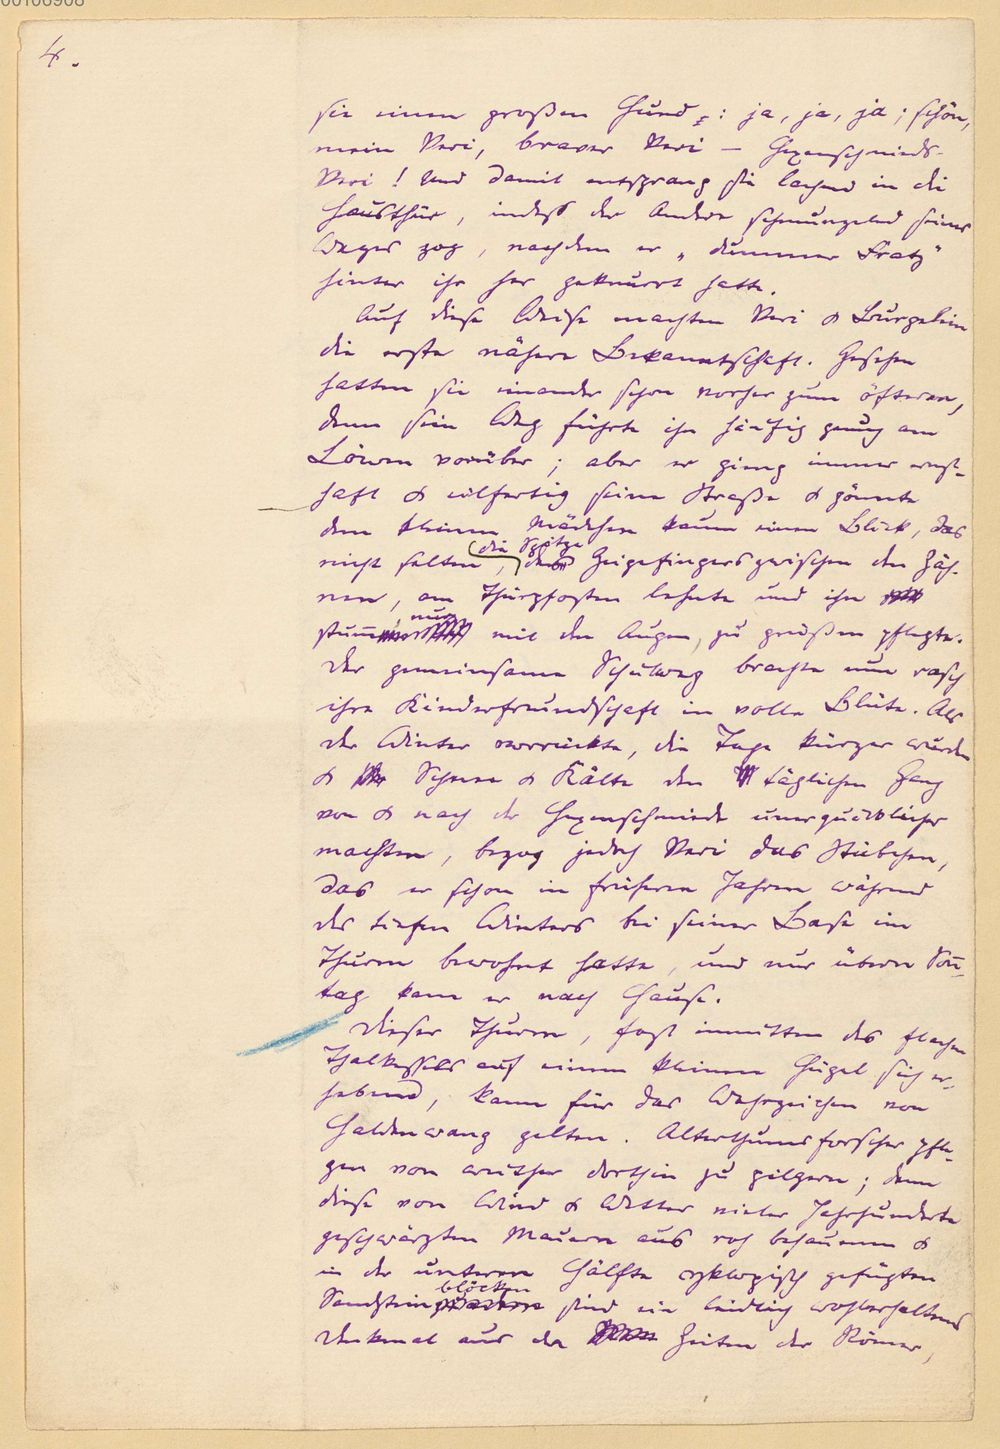 00106908
4.
sie einen großen Hund: ja, ja, ja; schön,
mein Veri, braver Veri — Hexenschmieds-
Veri! Und damit entsprang sie lachend in die
Hausthür, indeß der Andere schmunzelnd seines
Weges zog, nachdem er „dummer Fratz"
hinter ihr her geknurrt hatte.
Auf diese Weise machten Veri & Burgelein
die erste nähere Bekanntschaft. Gesehen
hatten sie einander schon vorher zum öfteren,
denn sein Weg führte ihn häufig genug am
Löwen vorüber; aber er gieng immer ernst-
haft & eilfertig seine Straße & gönnte
dem kleinen Mädchen kaum einen Blick, das
nicht selten, die Spitze des Zeigefingers zwischen den Zäh-
nen, am Thürpfosten lehnte und ihn
stumm, nur mit den Augen, zu grüßen pflegte.
Der gemeinsame Schulweg brachte nun rasch
ihre Kinderfreundschaft in volle Blüte. Als
der Winter vorrückte, die Tage kürzer wurden
& Schnee & Kälte den täglichen Gang
von & nach der Hexenschmiede unerquicklicher
machten, bezog jedoch Veri das Stübchen,
das er schon in frühern Jahren während
des tiefen Winters bei seiner Base im
Thurm bewohnt hatte, und nur übern Son̄-
tag kam er nach Hause.
Dieser Thurm, fast inmitten des flachen
Thalkessels auf einem kleinen Hügel sich er-
hebend, kann für das Wahrzeichen von
Haldenwang gelten. Alterthumsforscher pfle-
gen von weither dorthin zu pilgern; denn
diese von Wind & Wetter vieler Jahrhunderte
geschwärzten Mauern aus roh behauenen &
in der unteren Hälfte cyklopisch gefügten
Sandsteinblöcken sind ein leidlich wohlerhaltenes
Denkmal aus den Zeiten der Römer,